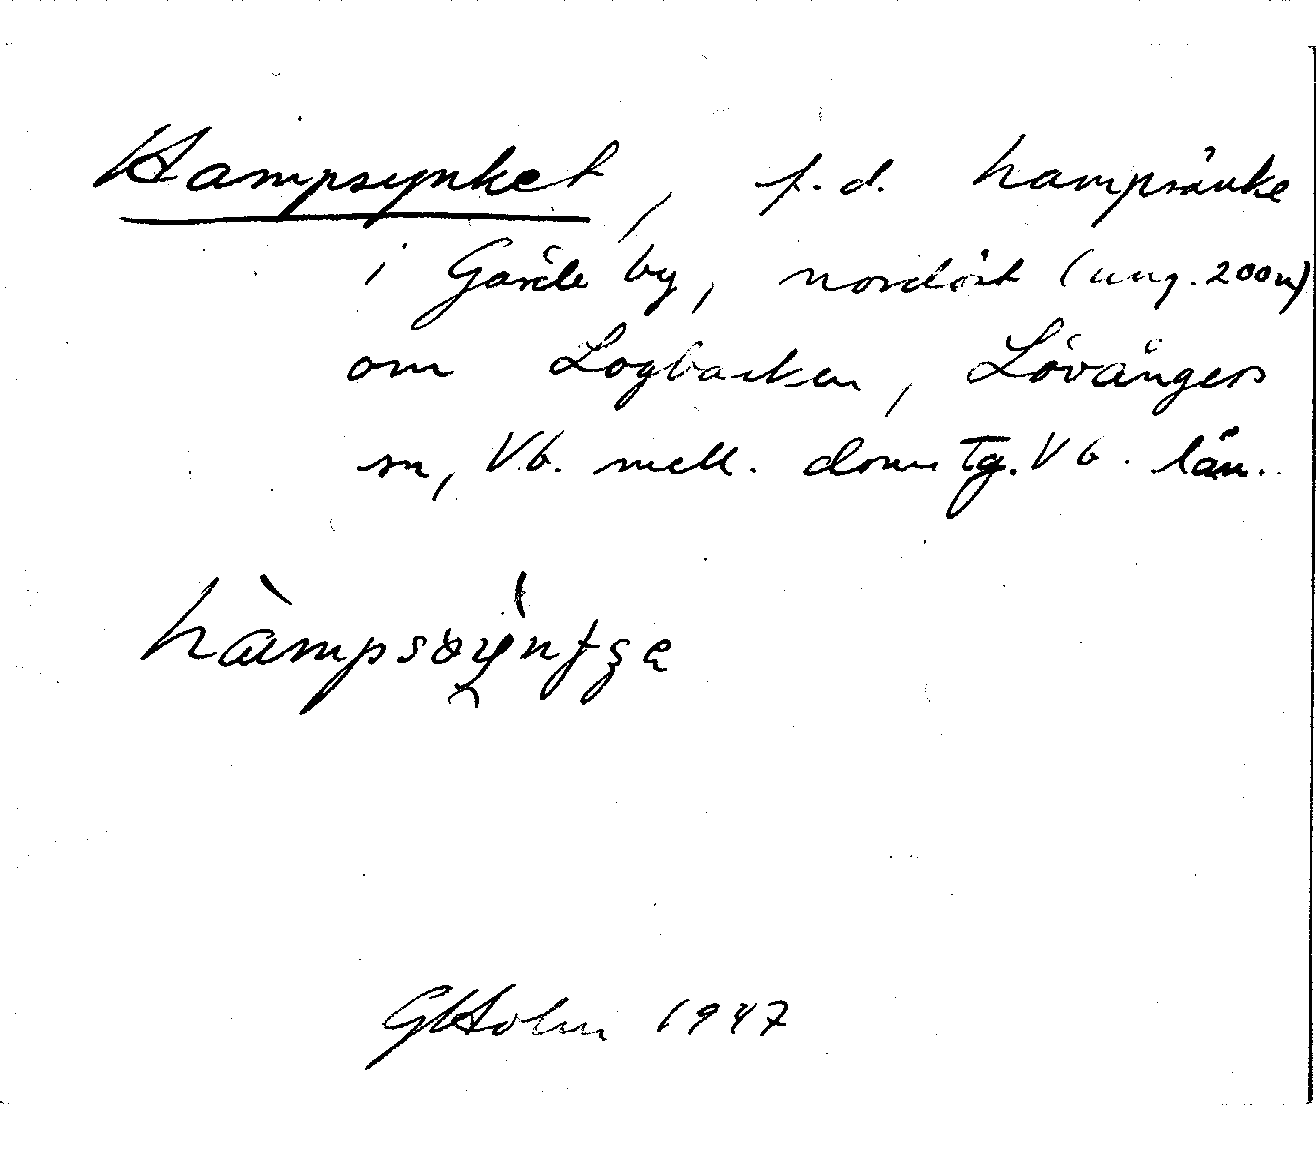 Hampsynket, f.d. hampsänke
i Gärde by, nordöst (ung. 200 m)
om Logbacken, Lövångers
sn, Vb. mell. doms Tg. Vb. län.
G Holm 1947